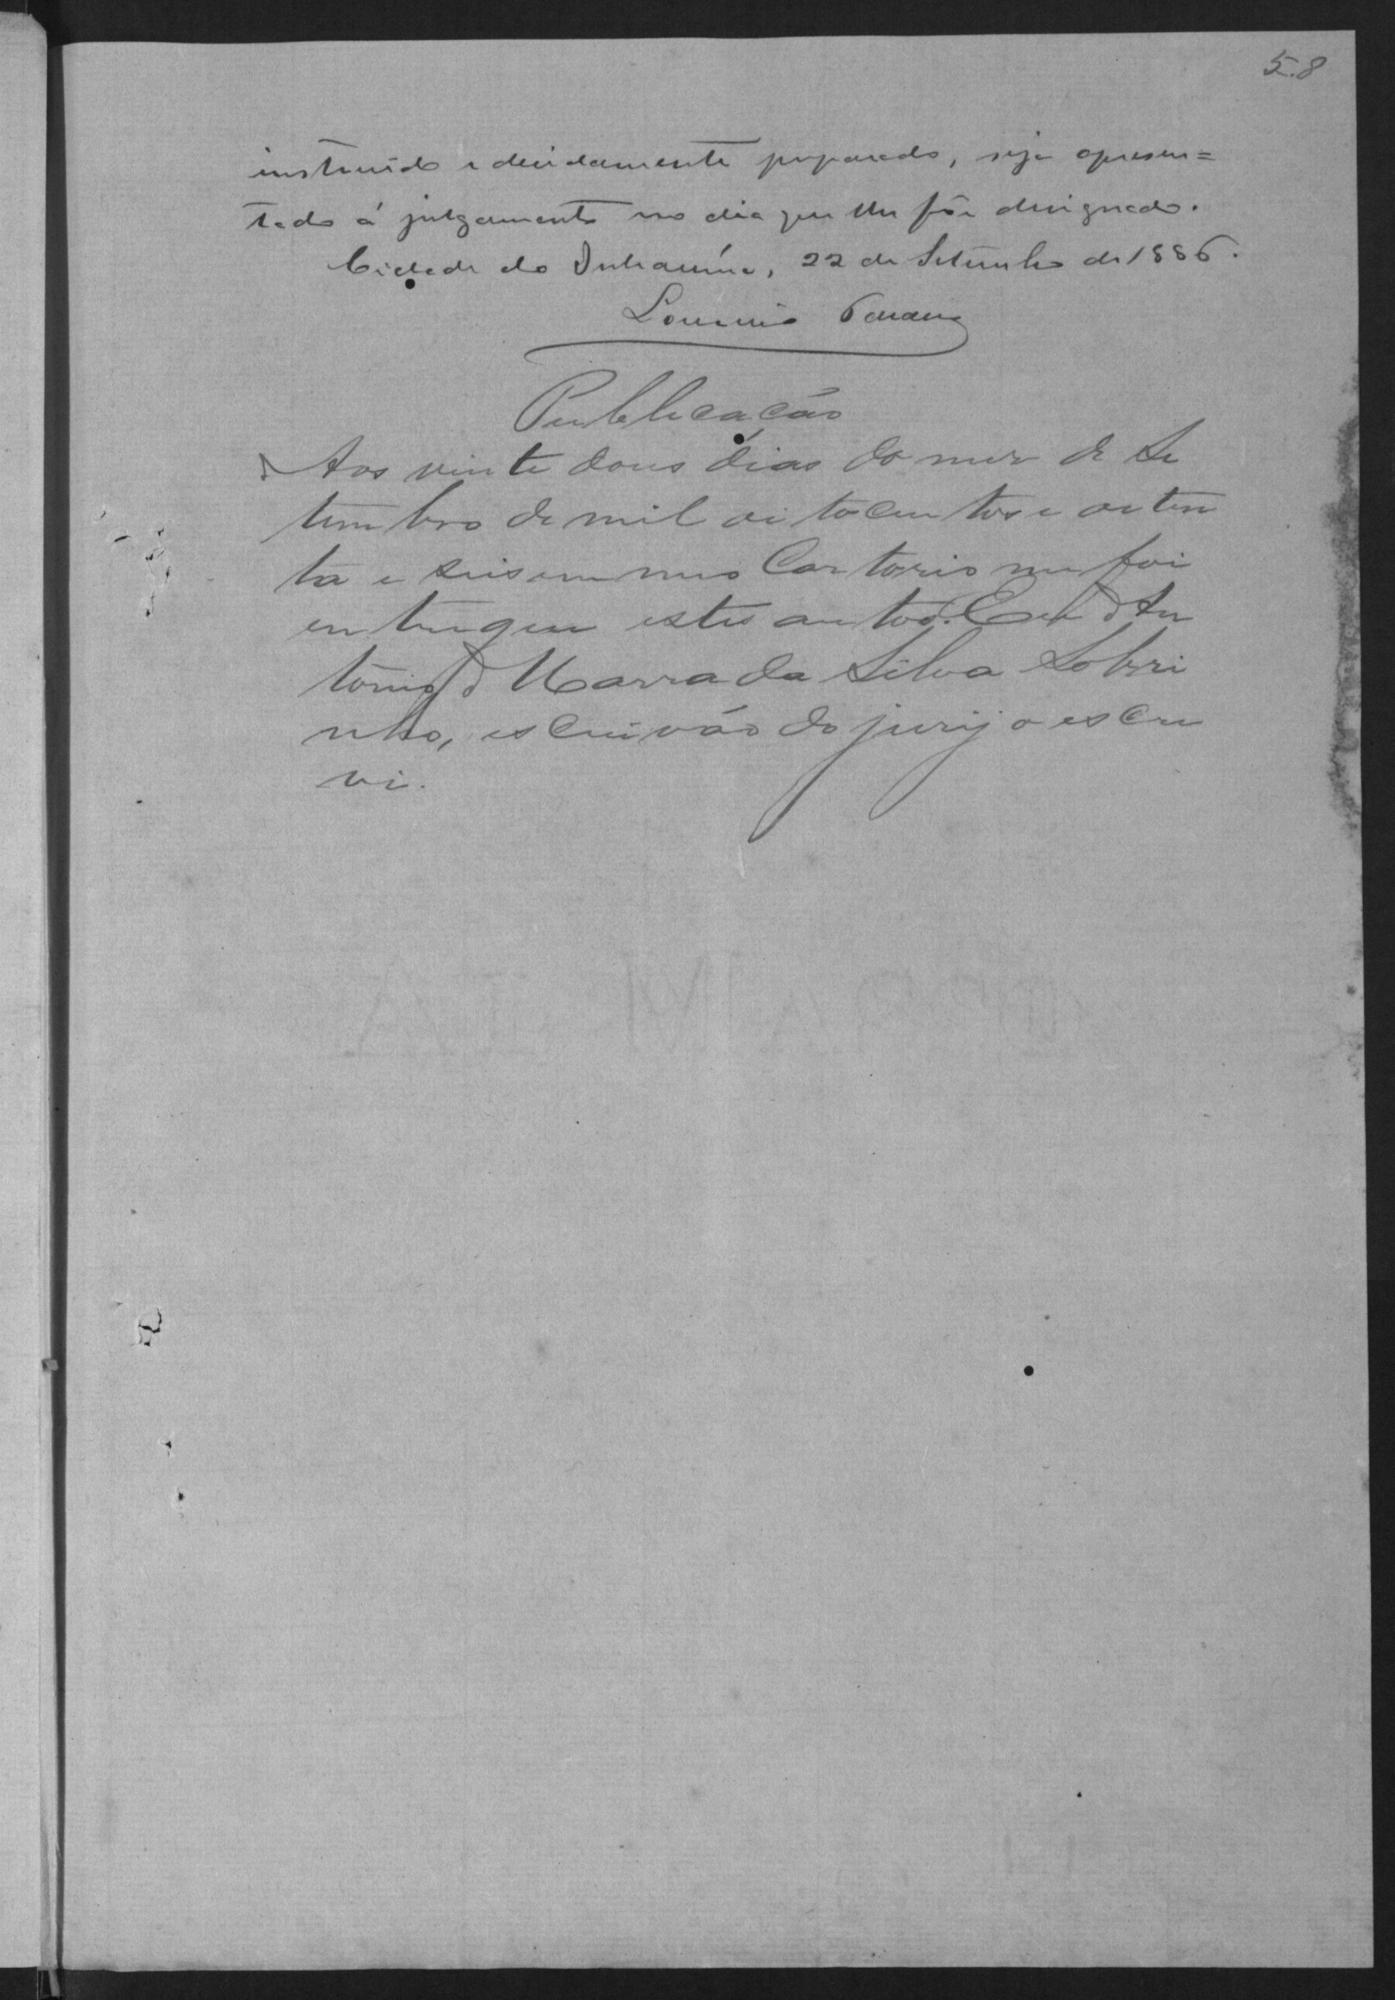 58
instruido e devidamente preparado, seja apresen=
tado á julgamento no dia que lhe fôr designado.
Cidade do Inhaúma, 22 de Setembro de 1886.
Publicação
Aos vinte dous dias do mez de Se
tembro de mil oi tocentos e oiten
ta e seis em meu Cartorio me foi
entregue estes autos. Eu An
tonio Marra da Silva Sobri
nho, escrivão do jury o escre
vi.